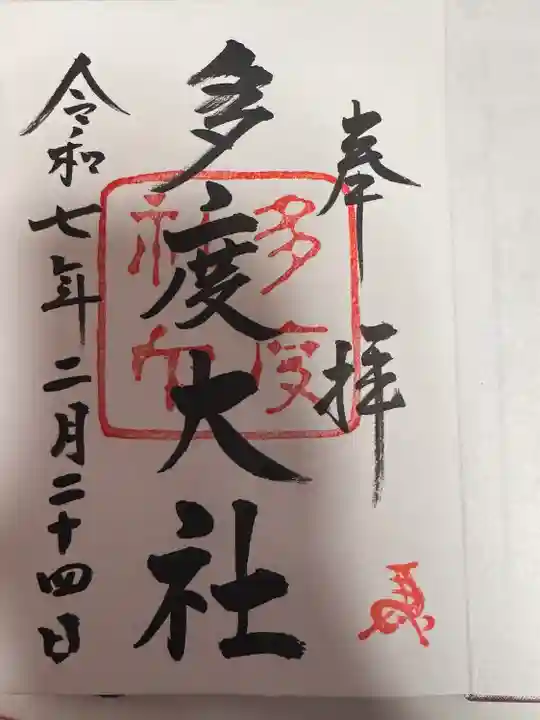 奉拝
多度大社
令和七年二月二十四日
多度